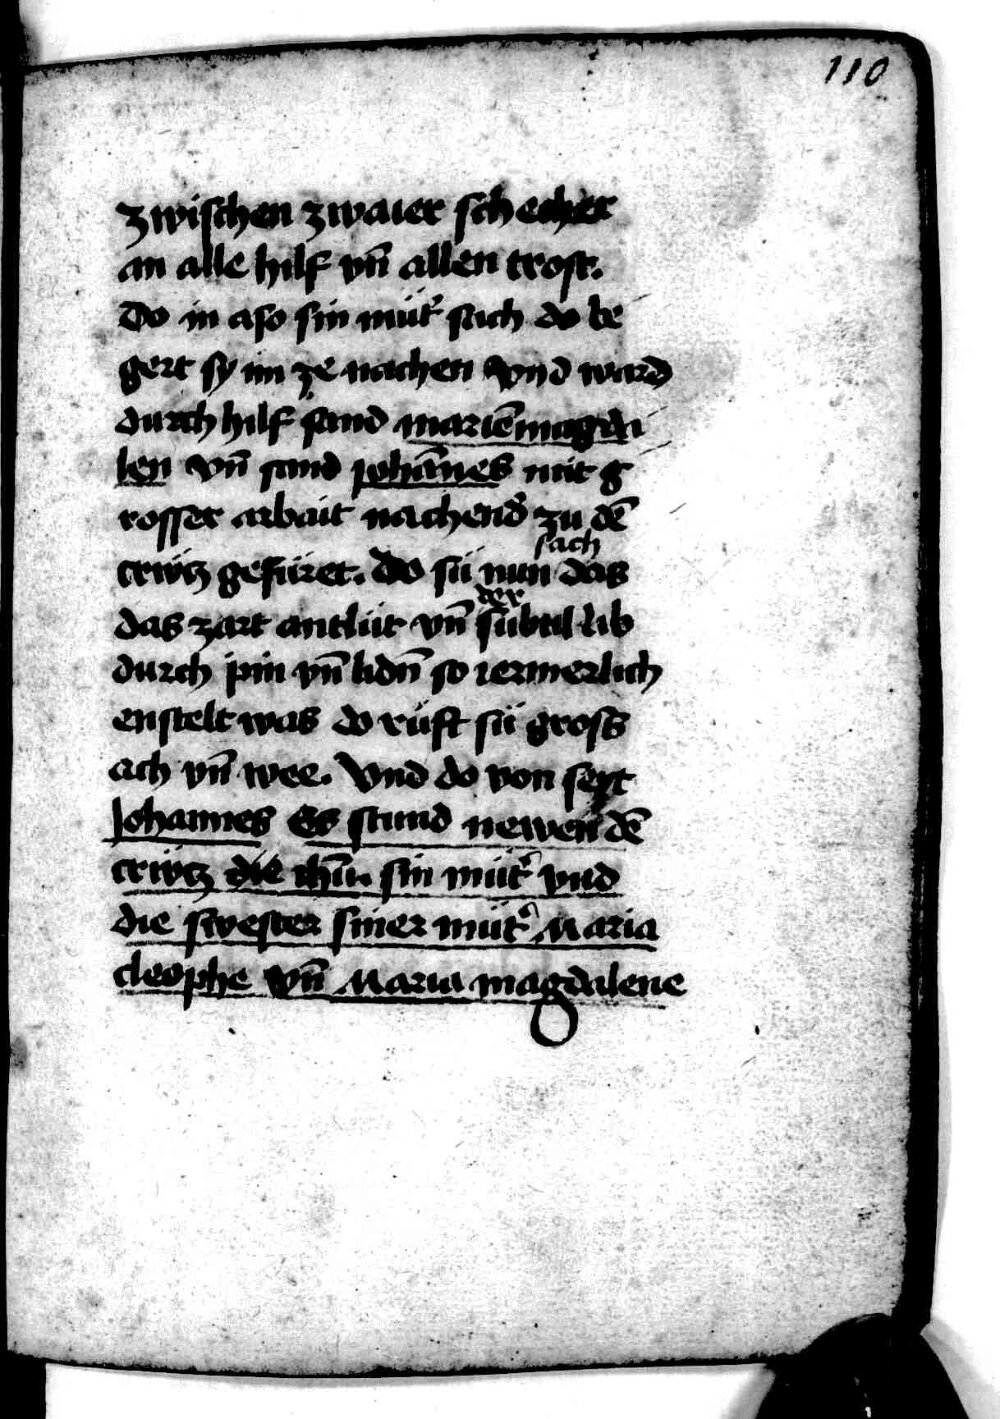 110
zwischen zwaier schecher
an alle hilf vn̄ allen trost.
Do in aso sin mùt͛ sach do be
gert sy im ze nachen Vnd ward
durch hilf sand mariē magda
len vn̄ sand johānes mit g
rosser arbait nachend͛ zu dē
crütz gefüret. Do sü nun sach das
das zart antlüt vn̄ der subtil lib
durch pin vn̄ lidn̄ so iermerlich
enstelt was do rüft sü gross
ach vn̄ wee. Vnd do von seyt
Johannes Es stund newen dē
crütz die ihū. sin müt͛ vnd
die swester siner müt͛ Maria
cleophe vn̄ Maria magdalene